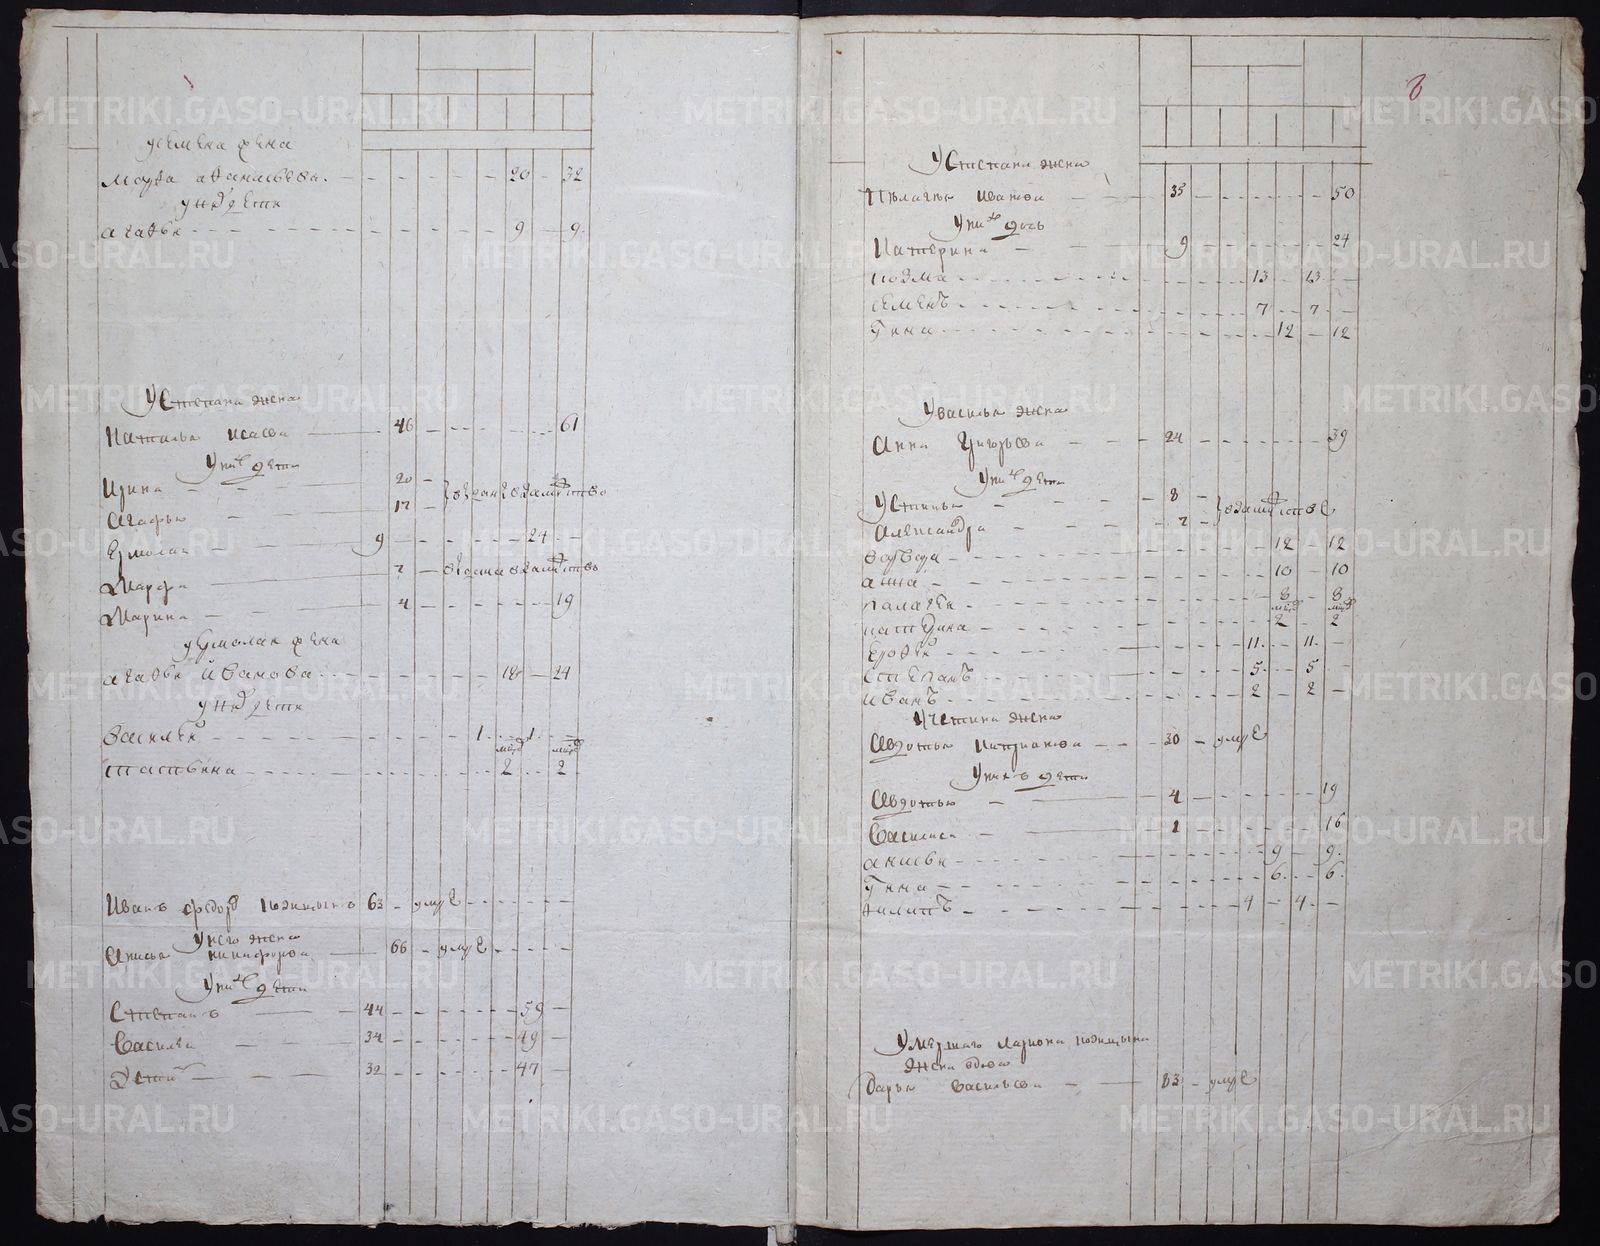 METRIKI.GASO-URAL.RU
у семена жена
марфа афанасьева - 20 - 32
у них дети
агафья - 9 - 9
У Степана жена
Наталья Исаева - 46 - 61
У них дети
Ирина - 20
Агафья - 17
Ермолай - 9 - 24
Марфа - 7 - выдана в замужство
Марина - 4 - 19
у ермолая жена
агафья иванова - 18 - 24
у них дети
василей - 1 - 1
татьяна - 2 - 2
Иванъ федоров 63 - умре
У него жена
Анисья никифорова - 66 - умре
У них дети
Степанъ - 44 - 59
Василей - 34 - 49
- 32 - 47
8
У Степана жена
Пелагея Иванова - 35 - 50
У них дочь
Катерина - 9 - 24
козма - 13 - 13
семенъ - 7 - 7
анна - 12 - 12
У василья жена
Анна Григорьева - 24 - 39
У них дети
Устинья - 8
Александра - 7
варвара - 12 - 12
анна - 10 - 10
палагея - 8 - 8
катерина - 2 - 2
ерофей - 11 - 11
степанъ - 5 - 5
иванъ - 2 - 2
жена
Авдотья - 30 - умре
У них дети
Авдотья - 4 - 19
Василиса - 1 - 16
анисья - 9 - 9
анна - 6 - 6
филипъ - 4 - 4
Умершаго Лариона
жена вдова
Дарья Васильева - 83 - умре